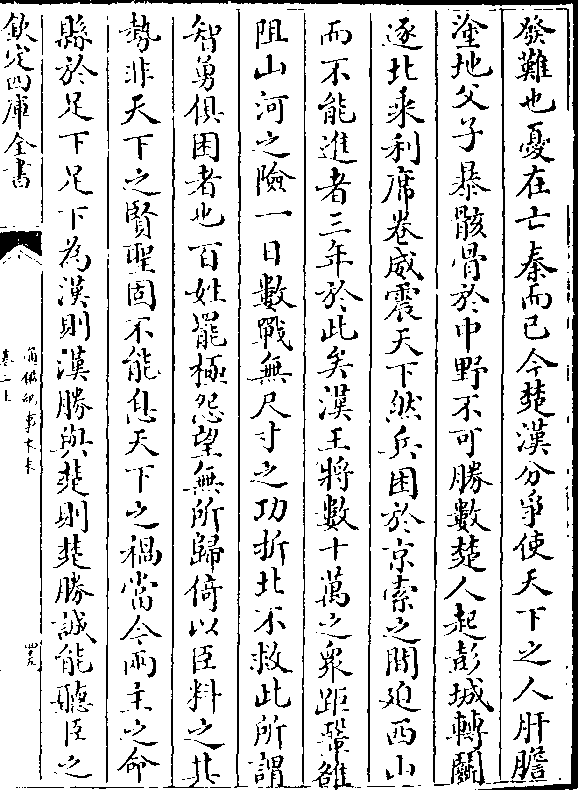 發難也憂在亡秦而已今楚漢分爭使天下之人肝膽
塗地父子暴骸骨於中野不可勝數楚人起彭城轉鬭
逐北乘利席卷威震天下然兵困於京索之間廹西山
而不能進者三年於此矣漢王將數十萬之衆距鞏雒
阻山河之險一日數戰無尺寸之功折北不救此所謂
智勇俱困者也百姓罷極怨望無所歸倚以臣料之其
勢非天下之賢聖固不能息天下之禍當今兩主之命
縣於足下足下為漢則漢勝與楚則楚勝誠能聽臣之
欽定四庫全書
卷二上